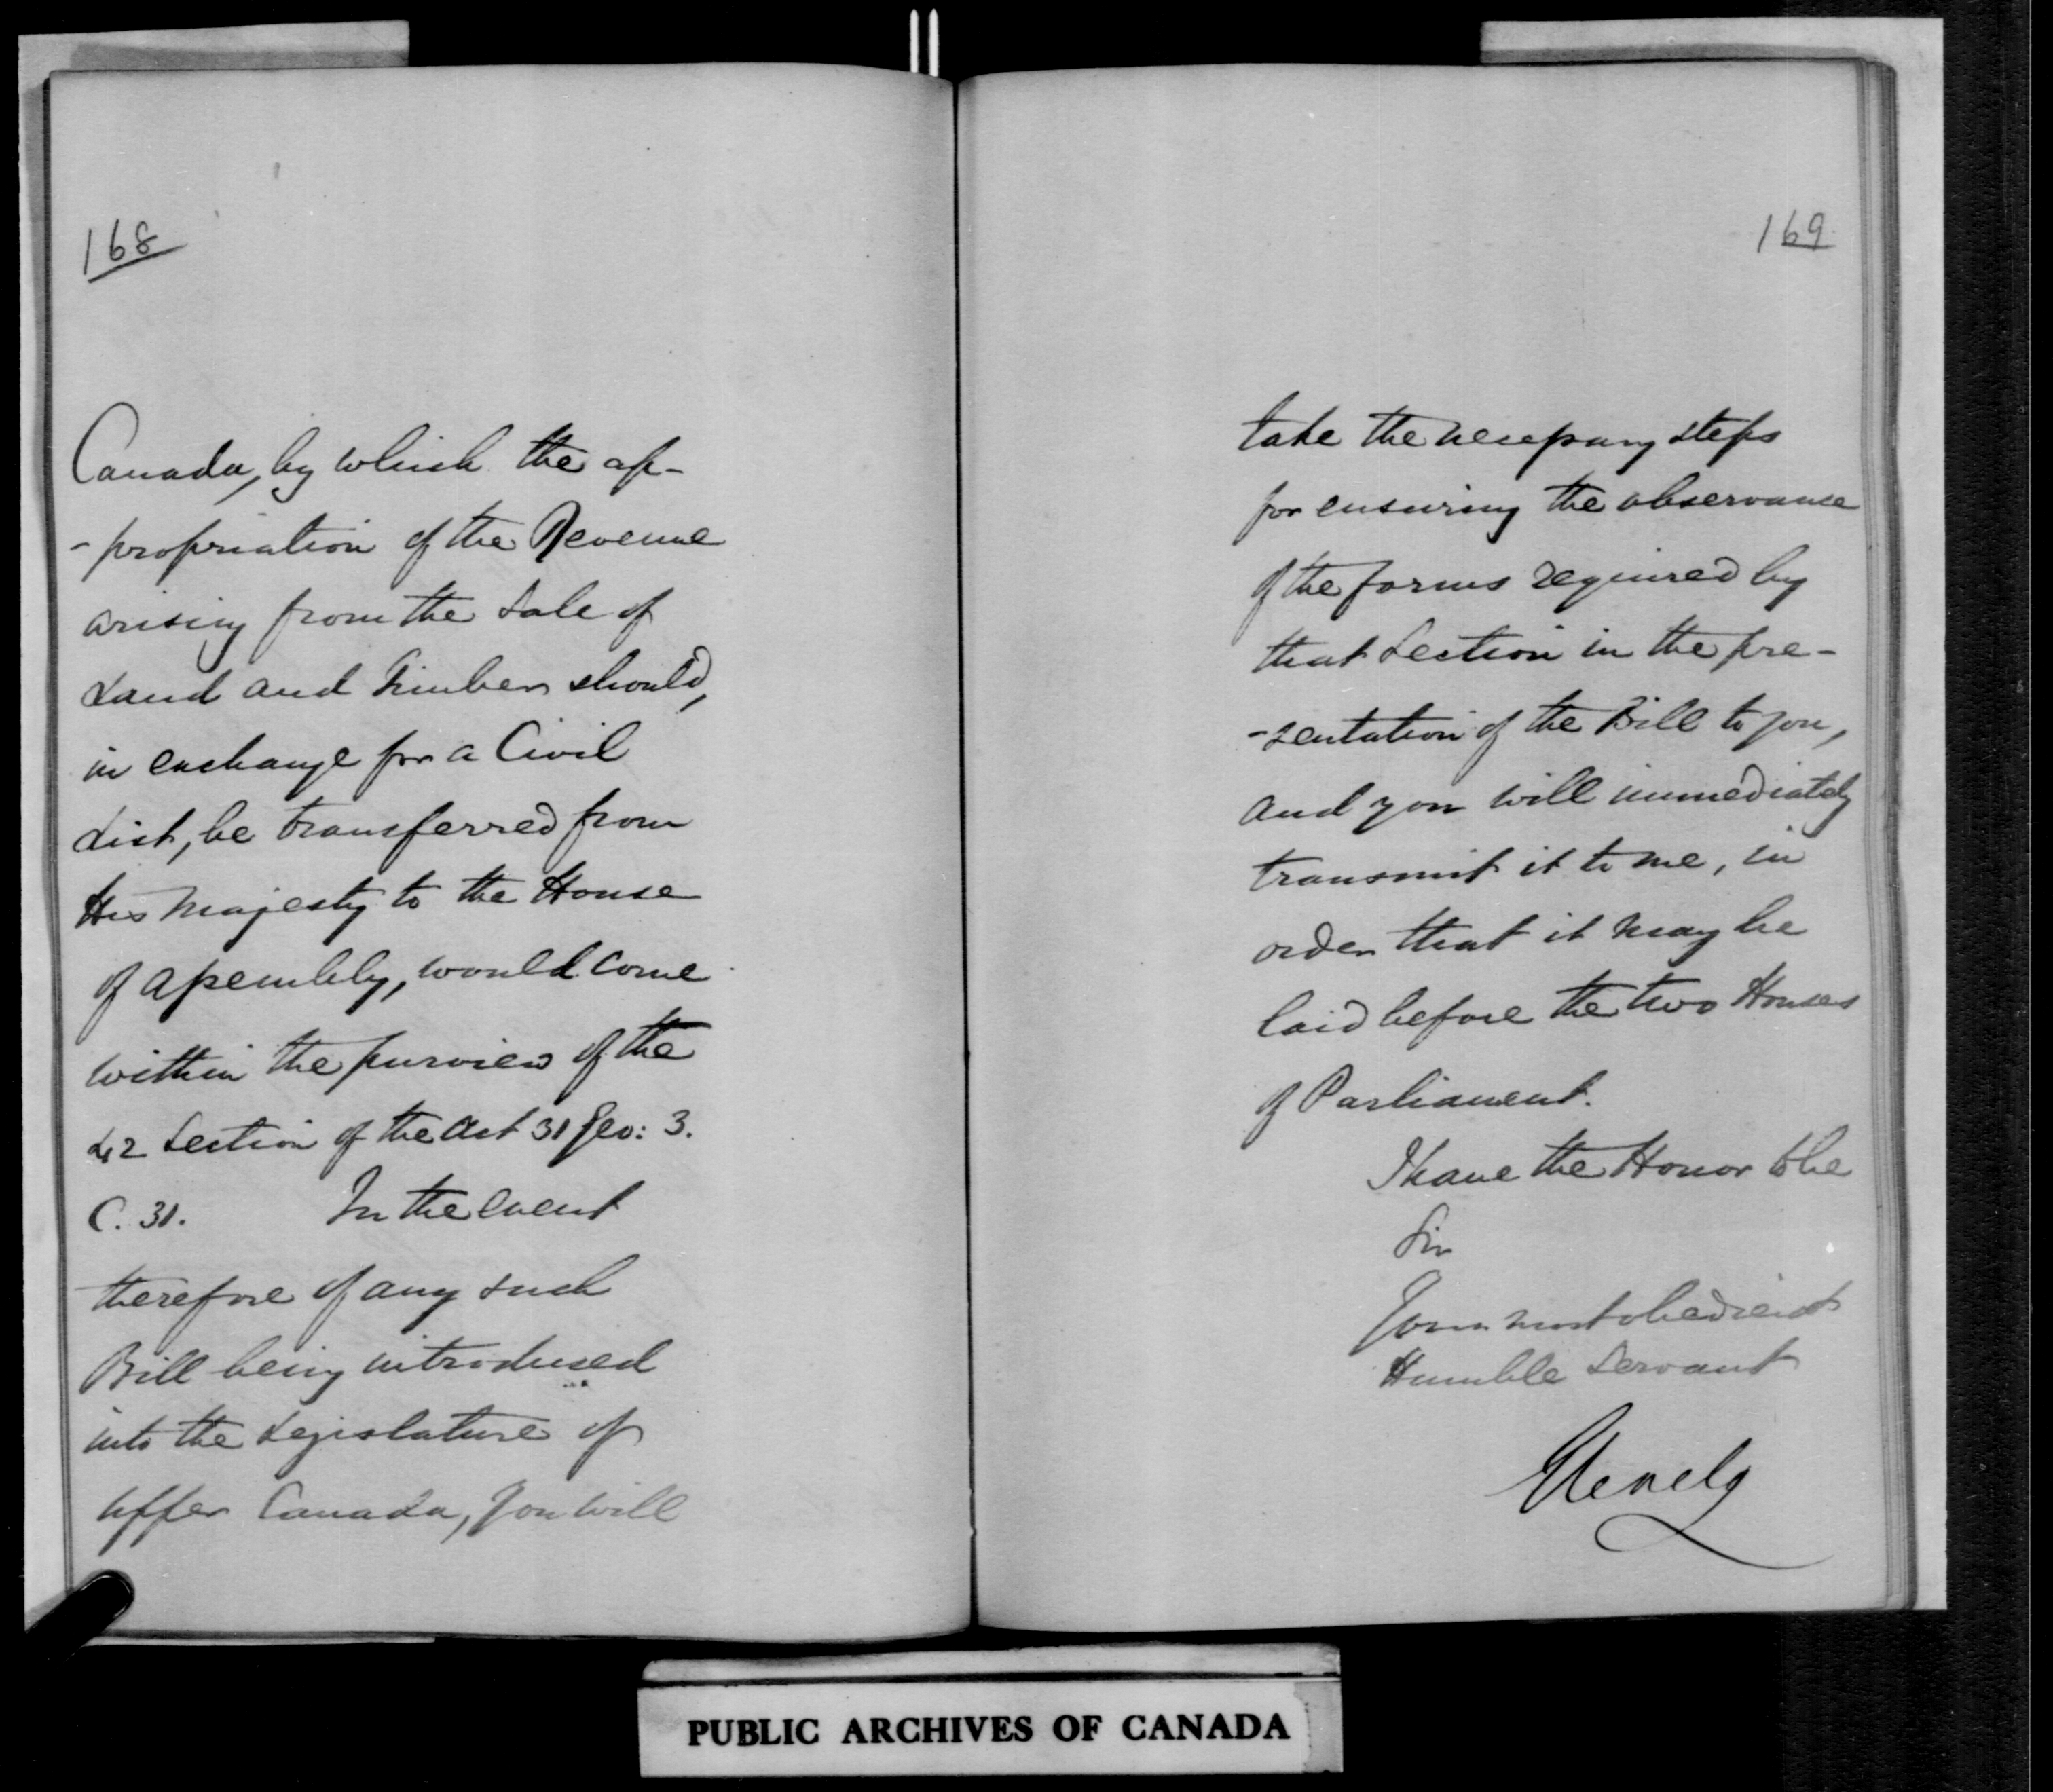 168
Canada, by which the ap-
-propriation of the Revenue
arising from the Sale of
Land and Timber should,
in exchange for a Civil
List, be transferred from
His Majesty to the House
of Assembly, would come
within the purview of the
42 Section of the Act 31 Geo: 3.
C. 31. In the event
therefore of any such
Bill being introduced
into the Legislature of
Upper Canada, you will
169
take the necessary steps
for ensuring the observance
of the forms required by
that Section in the pre-
-sentation of the Bill to you,
and you will immediately
transmit it to me, in
order that it may be
laid before the two Houses
of Parliament.
I have the Honor to be
Sir
Your most obedient
Humble Servant
Glenelg
PUBLIC ARCHIVES OF CANADA